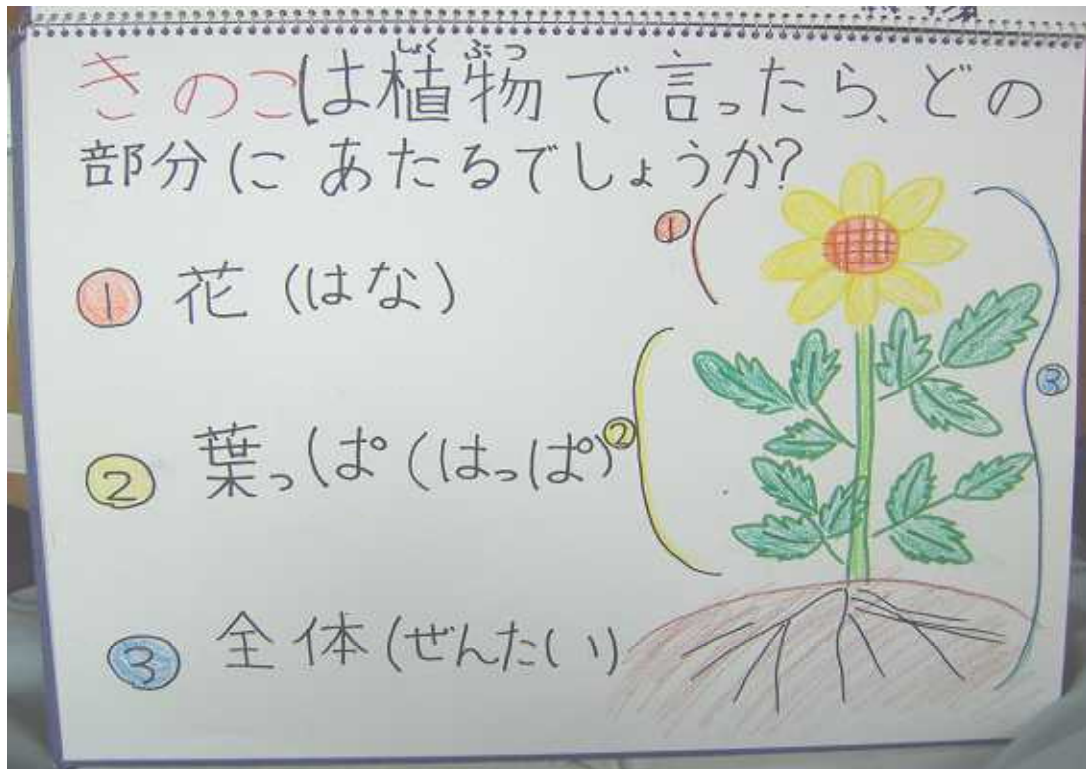 きのこは植物で言ったら、どの
部分にあたるでしょうか?
① 花 (はな)
② 葉っぱ (はっぱ)
③ 全体 (ぜんたい)
①
②
③
しょくぶつ